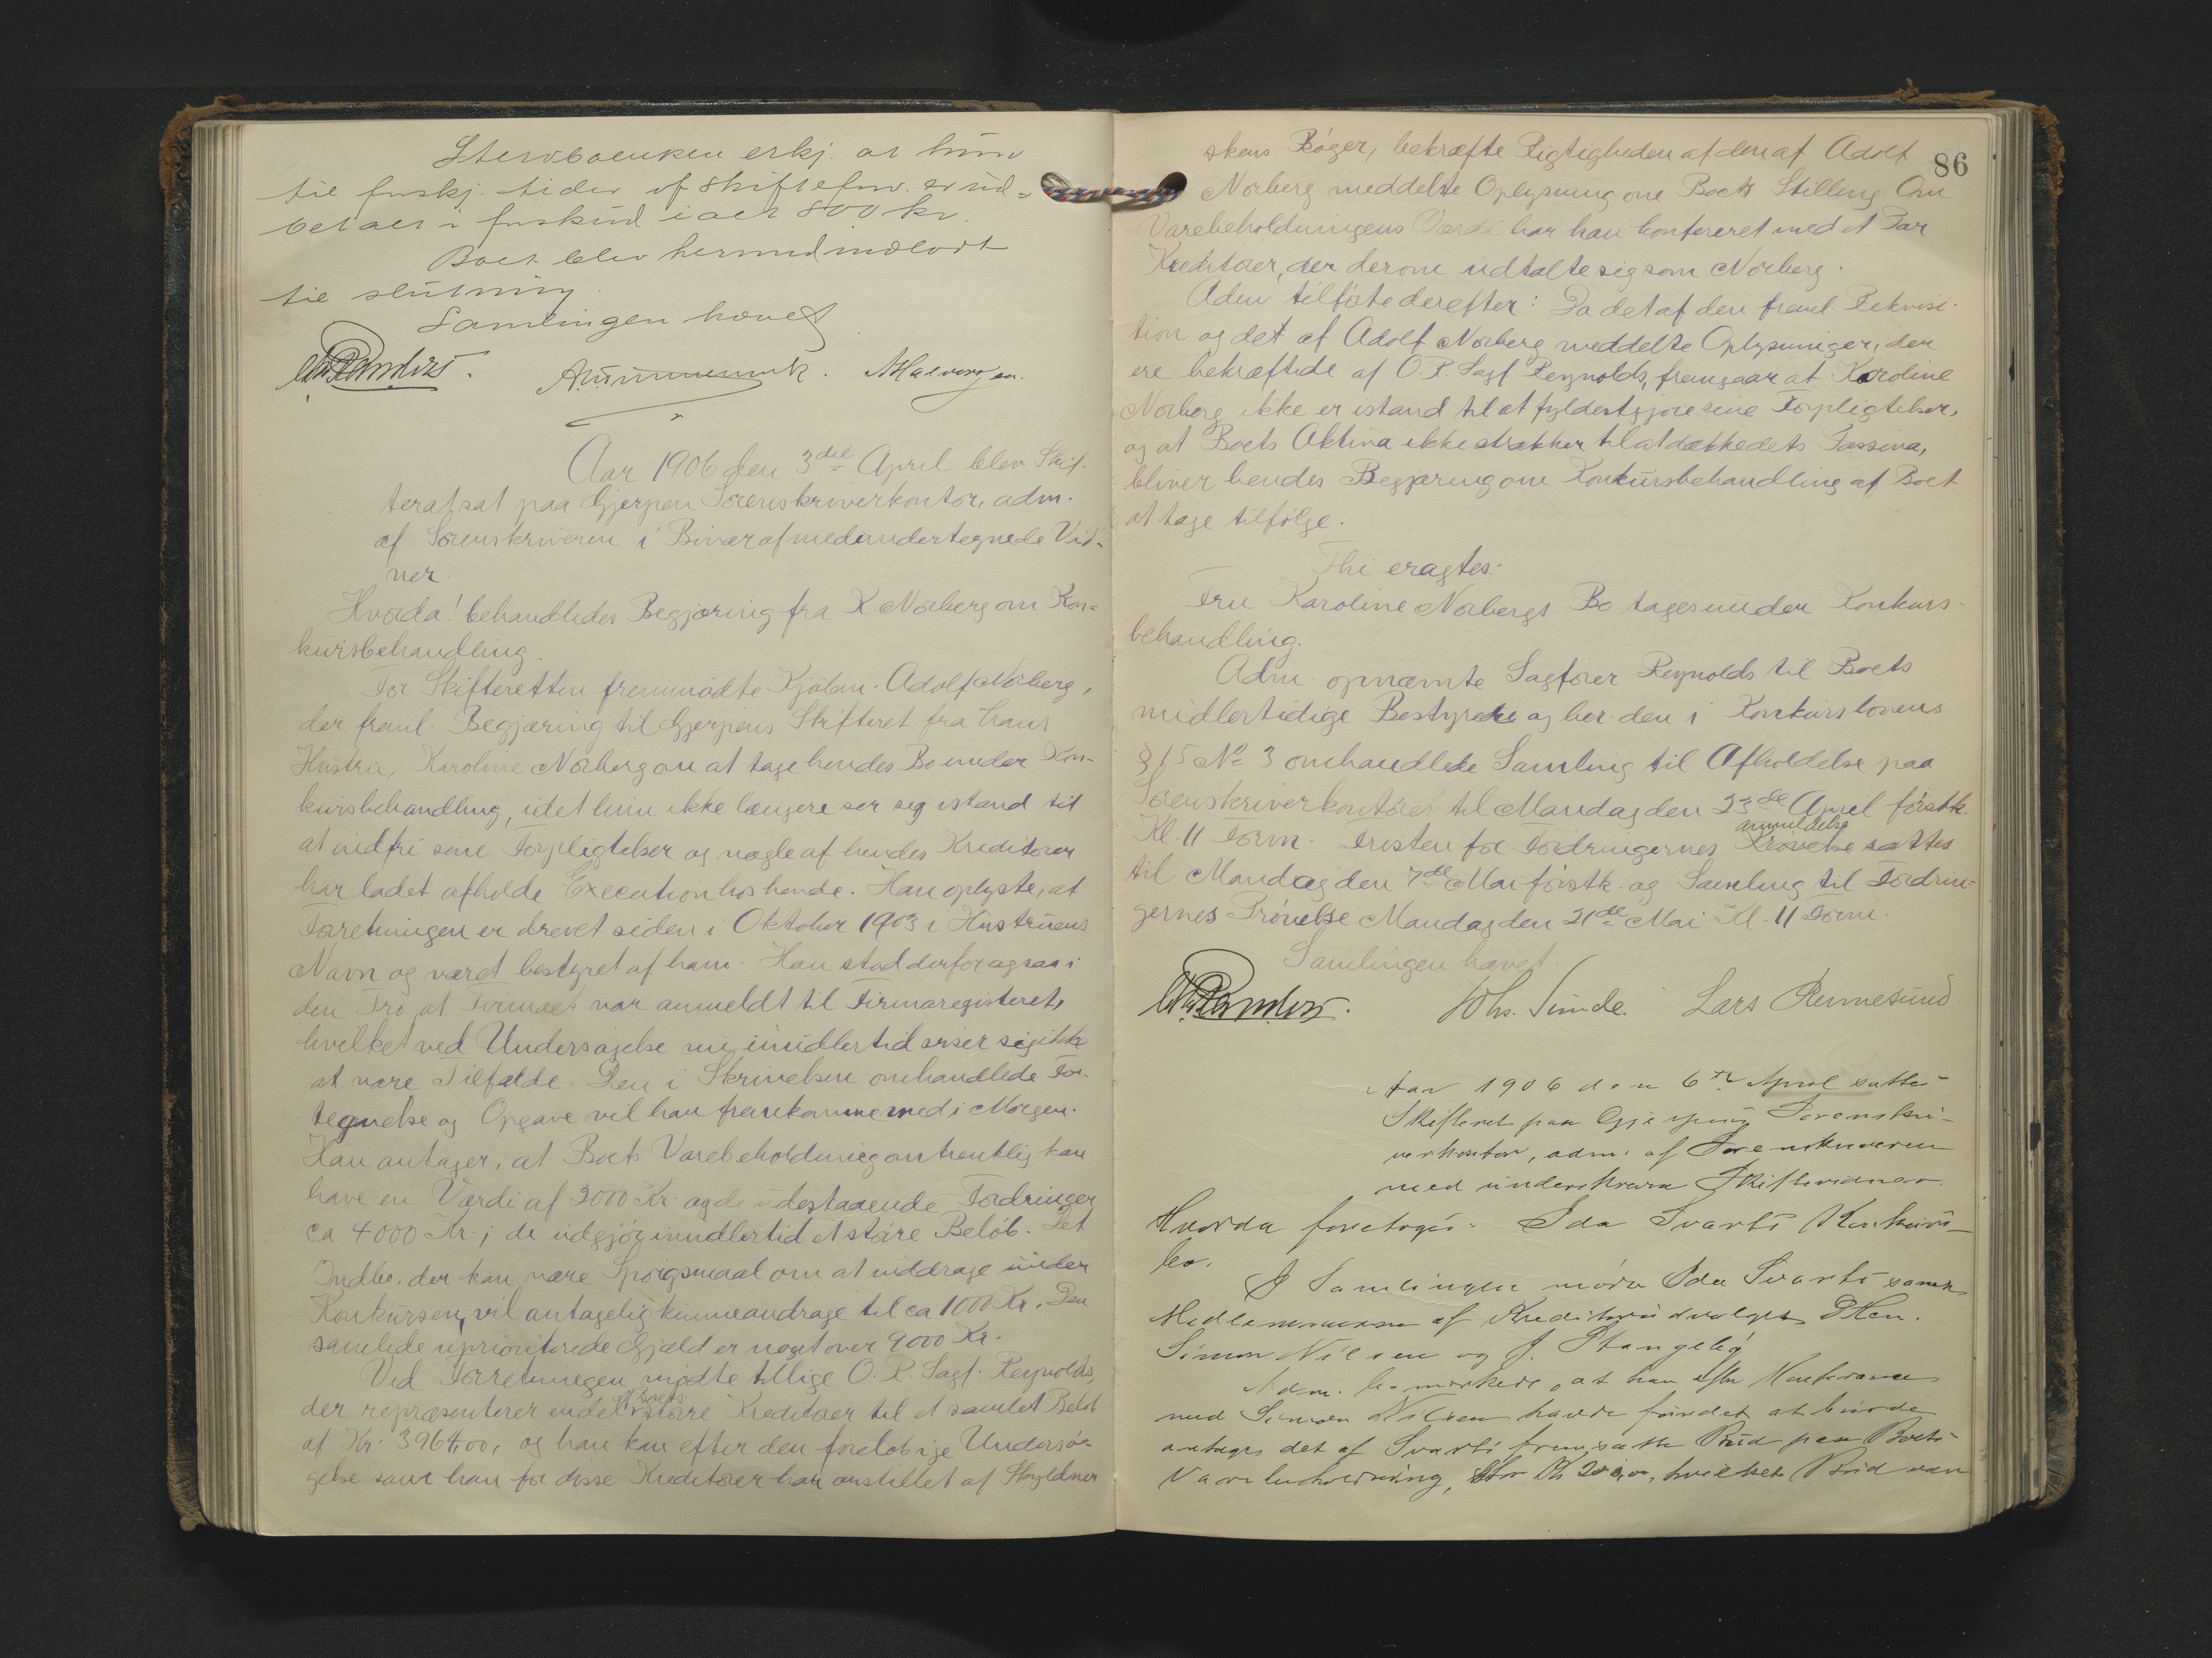 Sterboenken erkj. at hun
til forskj. tider af skifteforv. er ud=
betalt i forskud ialt 800 kr.
Boet blev hermed indlodt
til slutning.
Samlingen hævet
Aar 1906 den 3die April blev Skif-
teret sat paa Gjerpen Sorenskriverkontor, adm.
af Sorenskriveren i Overvær af medundertegnede Vid-
ner.
Hvorda! behandledes Begjæring fra K Norberg om Kon=
kursbehandling.
For Skifteretten fremmødte Kjøbm. Adolf Norberg,
der freml. Begjæring til Gjerpens Skifteret fra hans
Hustru, Karoline Norberg om at tage hendes Bo under Kon-
kursbehandling, idet hun ikke længere ser sig istand til
at indfri sine Forpligtelser og nogle af hendes Kreditorer
har ladet afholde Execution hos hende. Han oplyste, at
Forretningen er drevet siden i Oktober 1903 i Hustruens
Navn og været bestyret af ham. Han stod derfor ogsaa i
den Tro at Firmaet var anmeldt til Firmaregisteret,
hvilket ved Undersøgelse nu imidlertid viser sig ikke
at være Tilfælde. Den i Skrivelsen omhandlede For-
tegnelse og Opgave vil han fremkomme med i Morgen.
Han antager, at Boets Varebeholdning omtrentlig kan
have en Værdi af 3000 Kr. og de udestaaende Fordringer
ca 4000 Kr.; de udgjør imidlertid et større Beløb. Det
Indbo, der kan være Spørgsmaal om at inddrage under
Konkursen, vil antagelig kunne andrage til ca 1000 Kr. Den
samlede uprioriterede Gjæld er noget over 9000 Kr.
Ved Forretningen mødte tillige O. R. Sagf. Reynolds,
der repræsenterer endel af Boets større Kreditorer til et samlet Beløb
af Kr. 3964,00, og han kan efter den foreløbige Undersø-
gelse som han for disse Kreditorer har anstillet af Skyldner
86
skens Bøger, bekræfte Rigtigheden af den af Adolf
Norberg meddelte Oplysning om Boets Stilling. Om
Varebeholdningens Værdi har han konfereret med et Par
Kreditorer, der derom udtalte sig som Norberg.
Adm tilførte derefter: Da det af den freml. Rekvisi-
tion og det af Adolf Norberg meddelte Oplysninger, der
ere bekræftede af O. R. Sagf Reynolds, fremgaar at Karoline
Norberg ikke er istand til at fyldestgjøre sine Forpligtelser,
og at Boets Aktiva ikke strækker til at dække dets Passiva,
bliver hendes Begjæring om Konkursbehandling af Boet
at tage tilfølge.
Thi eragtes:
Fru Karoline Norbergs Bo tages under Konkurs-
behandling.
Adm. opnævnte Sagfører Reynolds til Boets
midlertidige Bestyrer og ber. den i Konkurslovens
§ 15 No 3 omhandlede Samling til Afholdelse paa
Sorenskriverkontoret til Mandag den 23de April førstk.
Kl. 11 Form. Fristen for Fordringernes anmeldelse sattes
til Mandag den 7de Mai førstk. og Samling til Fordrin=
gernes Prøvelse Mandag den 21de Mai Kl. 11 Form.
Samlingen hævet.
Johs. Sunde. Lars Rennesund
Aar 1906 den 6te April sattes
Skifteret paa Gjerpens Sorenskri-
verkontor, adm. af Sorenskriveren
med underskrevne Skiftevidner.
Hvorda foretoges: Ida Svarts Konkurs-
bo.
I Samlingen mødte Ida Svarts samt
Medlemmerne af Kreditorudvalget
Simon Nilsen og J. Stangeby
Adm. bemærkede, at han efter Konferance
med Simon Nilsen havde fundet at burde
antage det af Svarts fremsatte Bud paa Boets
Varebeholdning, hvilket Bud var